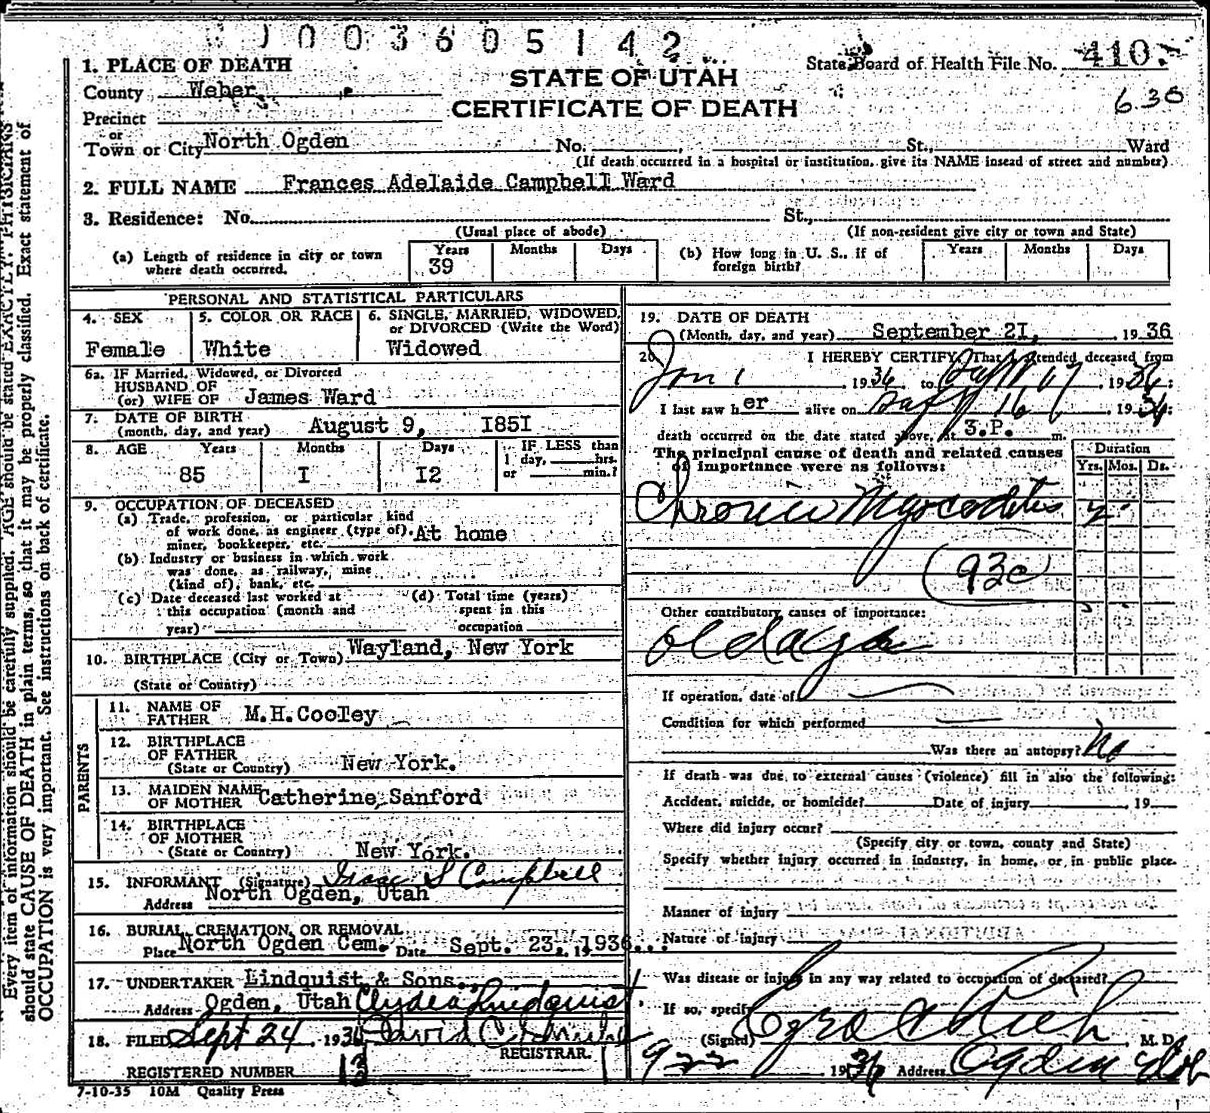 J003605142
1. PLACE OF DEATH
STATE OF UTAH
State Board of Health File No. 410.
County Weber
CERTIFICATE OF DEATH
6.30
Precinct
or
Town or City North Ogden No. St., Ward
(If death occurred in a hospital or institution, give its NAME insead of street and number)
2. FULL NAME Frances Adelaide Campbell Ward
3. Residence: No. St.,
(Usual place of abode)
(If non-resident give city or town and State)
(a) Length of residence in city or town where death occurred. Years 39 Months Days
(b) How long in U. S., if of foreign birth? Years Months Days
PERSONAL AND STATISTICAL PARTICULARS
4. SEX Female
5. COLOR OR RACE White
6. SINGLE, MARRIED, WIDOWED, or DIVORCED (Write the Word) Widowed
6a. IF Married, Widowed, or Divorced
HUSBAND OF
(or) WIFE OF James Ward
7. DATE OF BIRTH
(month, day, and year) August 9, I85I
8. AGE Years 85 Months I Days I2
IF LESS than
1 day, hrs.
or min.?
9. OCCUPATION OF DECEASED
(a) Trade, profession, or particular kind
of work done, as engineer (type of), At home
miner, bookkeeper, etc.
(b) Industry or business in which work
was done, as railway, mine
(kind of), bank, etc.
(c) Date deceased last worked at
this occupation (month and
year)
(d) Total time (years)
spent in this
occupation
10. BIRTHPLACE (City or Town) Wayland, New York
(State or Country)
PARENTS
11. NAME OF
FATHER M.H.Cooley
12. BIRTHPLACE
OF FATHER
(State or Country) New York.
13. MAIDEN NAME
OF MOTHER Catherine Sanford
14. BIRTHPLACE
OF MOTHER
(State or Country) New York.
15. INFORMANT (Signature) Isaac S Campbell
Address North Ogden, Utah
16. BURIAL, CREMATION, OR REMOVAL
Place North Ogden Cem. Date Sept. 23, 1936
17. UNDERTAKER Lindquist & Sons.
Address Ogden, Utah Clyde Lindquist
18. FILED Sept 24 1936 David C.
REGISTRAR.
REGISTERED NUMBER
7-10-35 10M Quality Press
19. DATE OF DEATH
(Month, day, and year) September 2I, 1936
20. I HEREBY CERTIFY, That I attended deceased from
Jan 1 1936 to 1936:
I last saw her alive on 16 1936:
death occurred on the date stated above, at 3.P. m.
The principal cause of death and related causes
of importance were as follows:
Duration
Yrs. Mos. Ds.
Chronic Myocarditis 2
(93c)
Other contributory causes of importance:
old age
If operation, date of
Condition for which performed
Was there an autopsy? No
If death was due to external causes (violence) fill in also the following:
Accident, suicide, or homicide? Date of injury 19
Where did injury occur?
(Specify city or town, county and State)
Specify whether injury occurred in industry, in home, or in public place.
Manner of injury
Nature of injury
Was disease or injury in any way related to occupation of deceased?
If so, specify
(Signed) Rich M. D.
9-22 1936 Address Ogden Utah
Every item of information should be carefully supplied. AGE should be stated EXACTLY. PHYSICIANS
should state CAUSE OF DEATH in plain terms, so that it may be properly classified. Exact statement of
OCCUPATION is very important. See instructions on back of certificate.